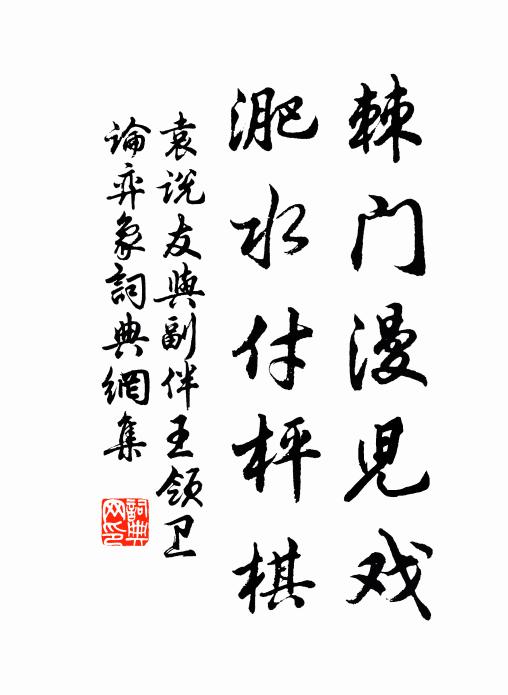 棘门漫兒戏
淝水付枰棋
袁说友與副伴王领卫
論弈象詞典網集
詞典网印